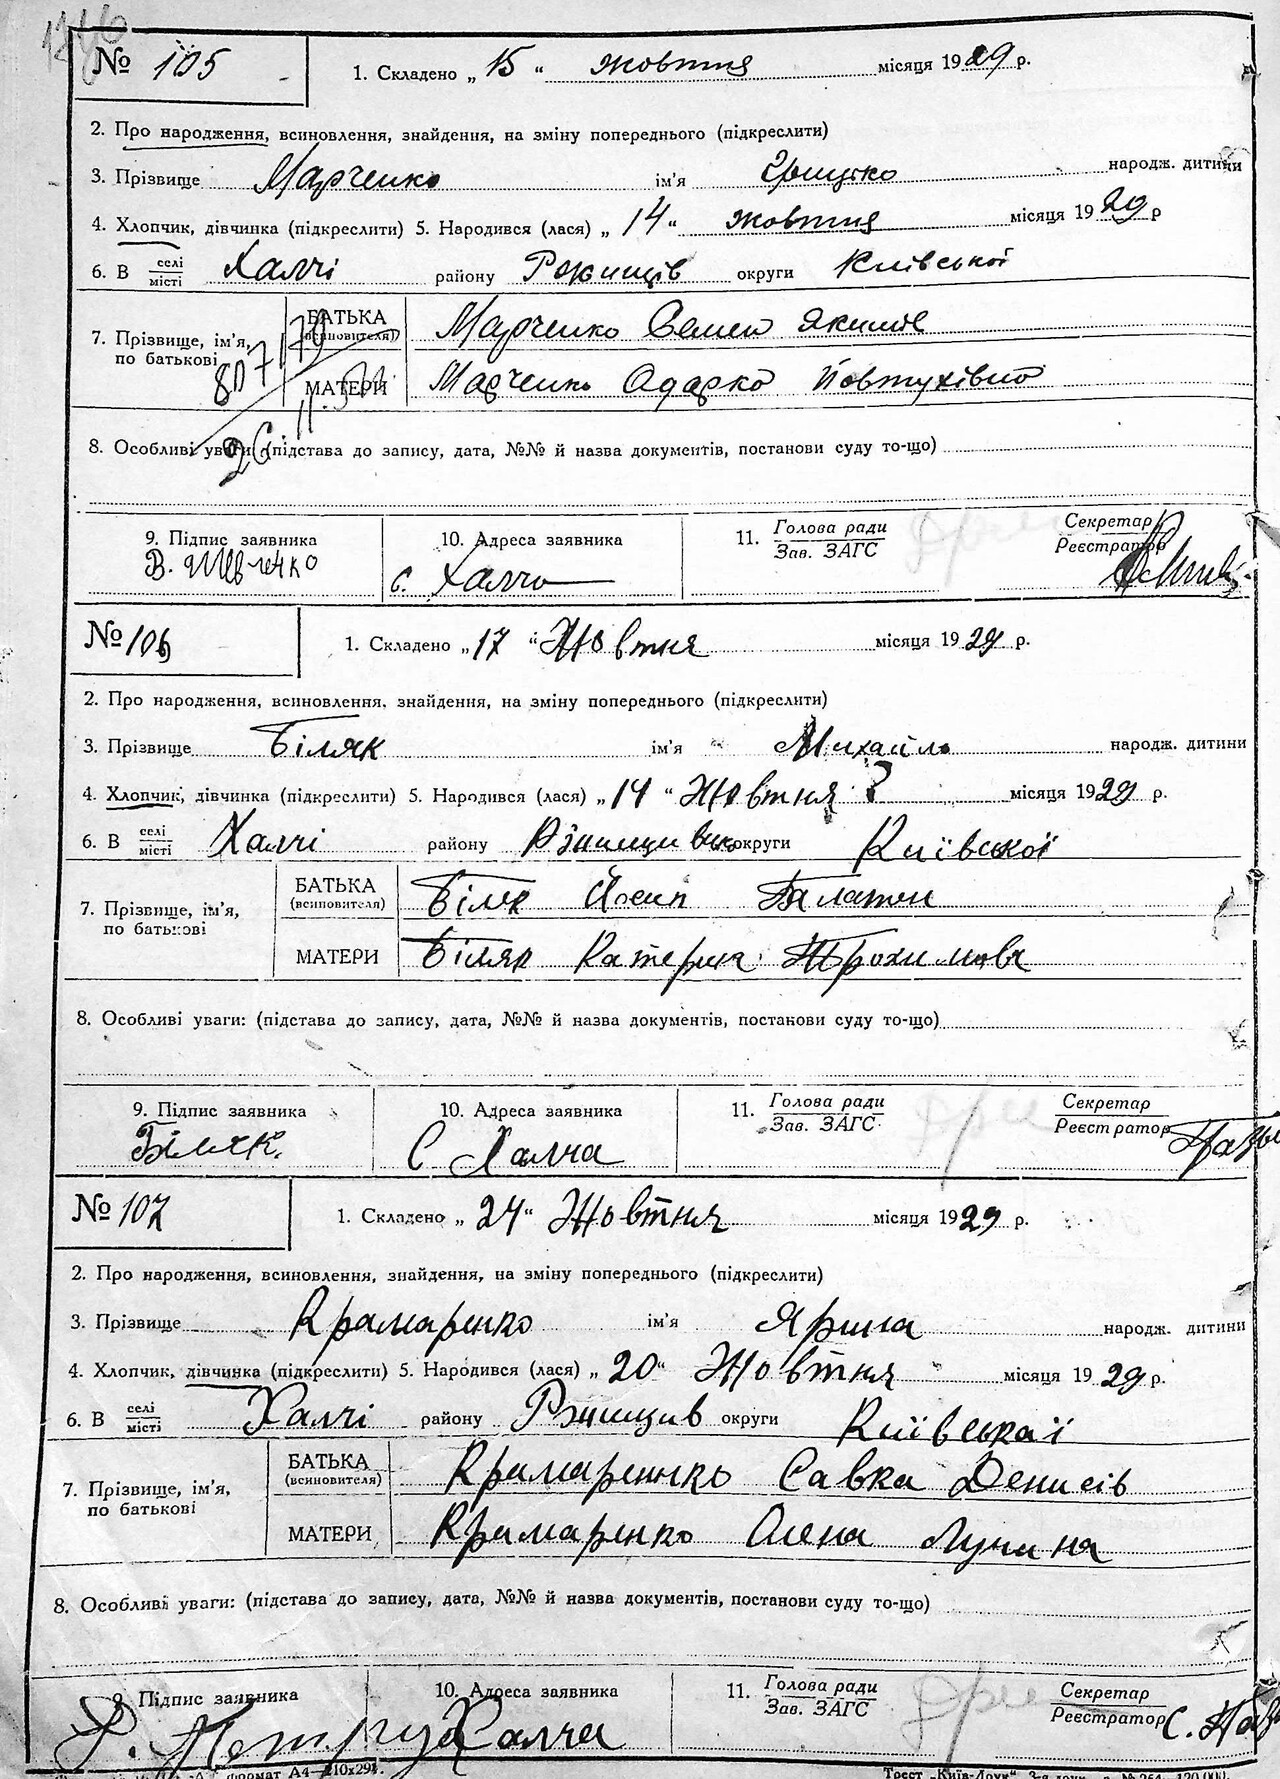 № 105
1. Складено „ 15 “ жовтня місяця 1929 р.
2. Про народження, всиновлення, знайдення, на зміну попереднього (підкреслити)
3. Прізвище Марченко ім'я Грицько народж. дитини
4. Хлопчик, дівчинка (підкреслити) 5. Народився (лася) „ 14 “ жовтня місяця 1929 р
6. В селі місті Халчі району Ржищів округи Київської
7. Прізвище, ім'я, по батькові
БАТЬКА (всиновителя) Марченко Семен Якимів
МАТЕРИ Марченко Одарка Йовтухівна
8. Особливі уваги (підстава до запису, дата, №№ й назва документів, постанови суду то-що)
9. Підпис заявника 10. Адреса заявника 11. Голова ради Зав. ЗАГС Секретар Реєстратор
В. Шевченко с. Халча
№ 106
1. Складено „ 17 “ Жовтня місяця 1929 р.
2. Про народження, всиновлення, знайдення, на зміну попереднього (підкреслити)
3. Прізвище Біляк ім'я Михайло народж. дитини
4. Хлопчик, дівчинка (підкреслити) 5. Народився (лася) „ 14 “ Жовтня місяця 1929 р.
6. В селі місті Халчі району округи Київської
7. Прізвище, ім'я, по батькові
БАТЬКА (всиновителя) Біляк Йосип
МАТЕРИ Біляк Катерина
8. Особливі уваги: (підстава до запису, дата, №№ й назва документів, постанови суду то-що)
9. Підпис заявника 10. Адреса заявника 11. Голова ради Зав. ЗАГС Секретар Реєстратор
Біляк. С Халча
№ 107
1. Складено „ 24 “ Жовтня місяця 1929 р.
2. Про народження, всиновлення, знайдення, на зміну попереднього (підкреслити)
3. Прізвище Крамаренко ім'я Ярина народж. дитини
4. Хлопчик, дівчинка (підкреслити) 5. Народився (лася) „ 20 “ Жовтня місяця 1929 р.
6. В селі місті Халчі району Ржищів округи Київської
7. Прізвище, ім'я, по батькові
БАТЬКА (всиновителя) Крамаренко Савка Денисів
МАТЕРИ Крамаренко Олена
8. Особливі уваги: (підстава до запису, дата, №№ й назва документів, постанови суду то-що)
9. Підпис заявника 10. Адреса заявника 11. Голова ради Зав. ЗАГС Секретар Реєстратор
Халча
Формат А4—210х297.
Трест „Київ-Друк“